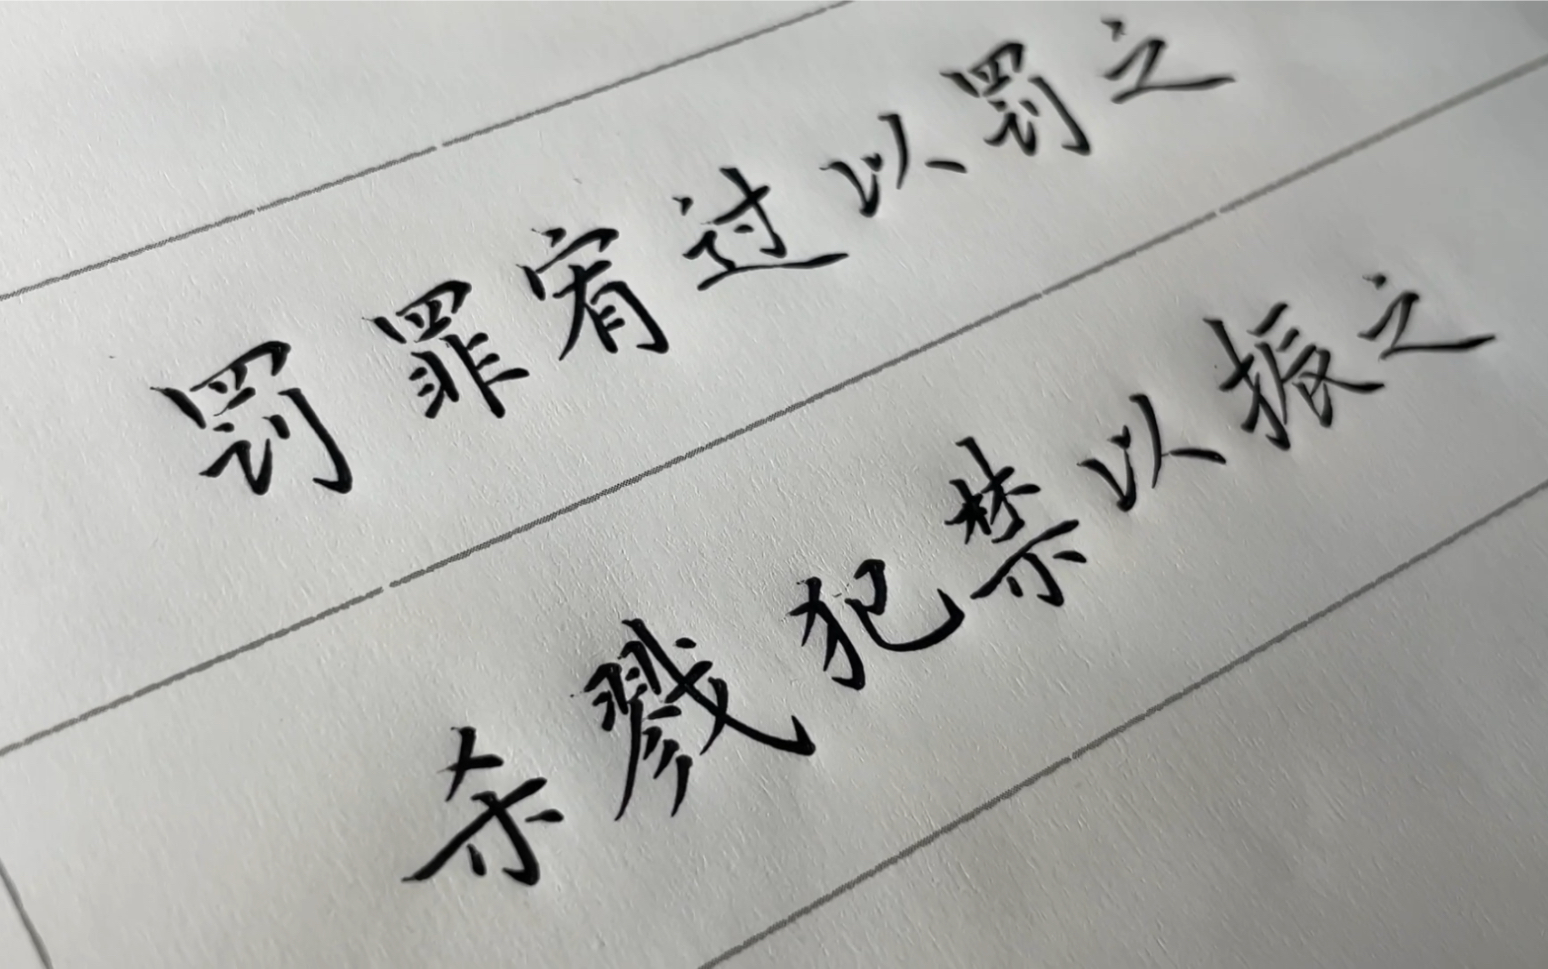 罚罪宥过以罚之
杀戮犯禁以振之